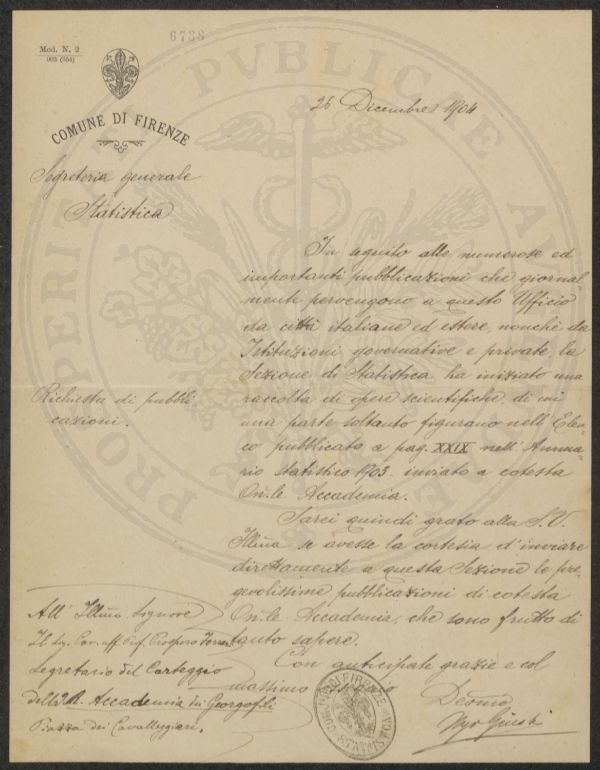 6738
Mod. N. 2
COMUNE DI FIRENZE
26 Dicembre 1904
Segreteria generale
Statistica
In seguito alle numerose ed
importanti pubblicazioni che giornal-
mente pervengono a questo Ufficio
da città italiane ed estere, nonchè da
Istituzioni governative e private, la
Sezione di Statistica ha iniziato una
raccolta di opere scientifiche, di cui
una parte soltanto figurano nell'Elen-
co pubblicato a pag. XXIX nell'Annua-
rio statistico 1903 inviato a cotesta
On.le Accademia.
Richiesta di pubbli
cazioni.
Sarei quindi grato alla S.V.
Illma se avesse la cortesia d'inviare
direttamente a questa Sezione le pre-
gevolissime pubblicazioni di cotesta
On.le Accademia, che sono frutto di
tanto sapere.
Con anticipate grazie e col
massimo ossequio
All' Illmo Signore
Il Sig. Cav. uff. Prof. Prospero
Segretario del Carteggio
della R. Accademia dei Georgofili
Piazza dei Cavalleggieri.
PROSPERITATI PVBLICAE